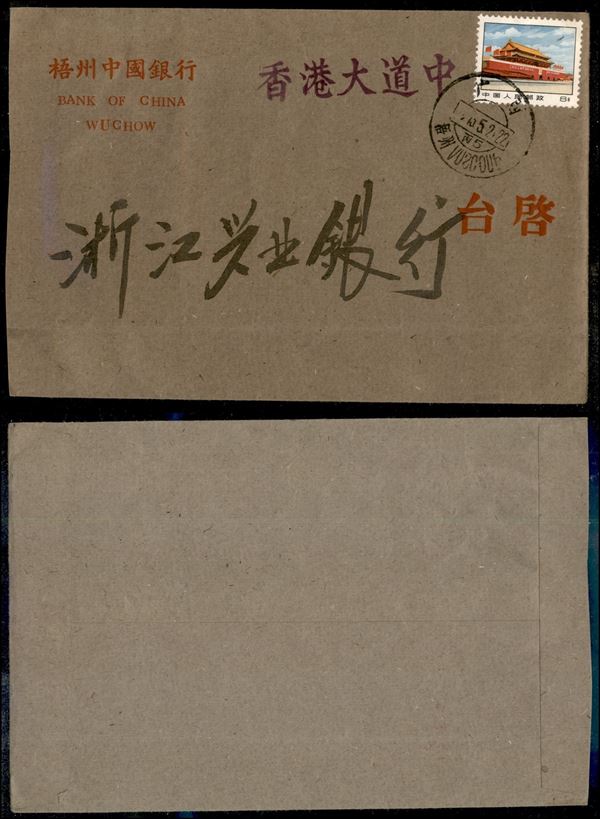 梧州中國銀行
BANK OF CHINA
WUCHOW
香港大道中
中国人民邮政
8分
浙江兴业銀行
台啓